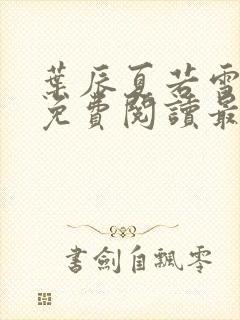 葉辰夏若雪
免費閱讀最
書劍自飄零